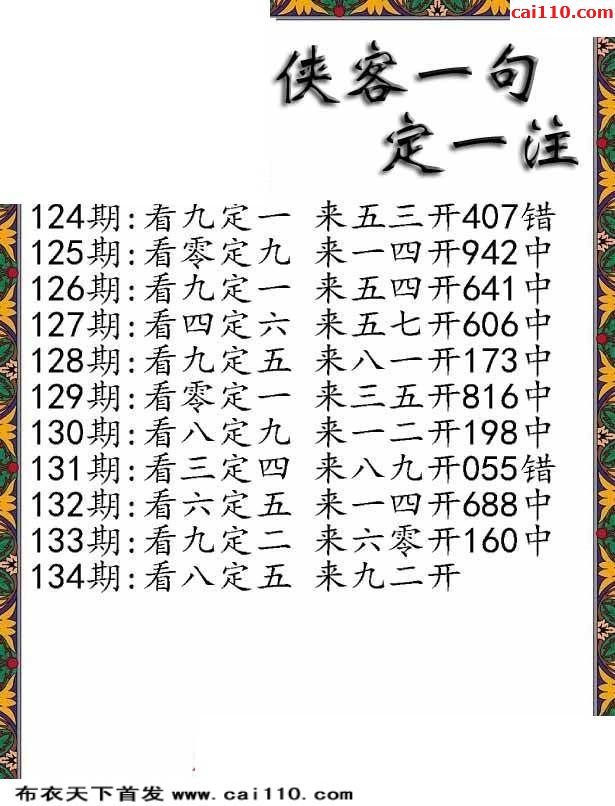 cai110.com
侠客一句
定一注
124期:看九定一 来五三开407错
125期:看零定九 来一四开942中
126期:看九定一 来五四开641中
127期:看四定六 来五七开606中
128期:看九定五 来八一开173中
129期:看零定一 来三五开816中
130期:看八定九 来一二开198中
131期:看三定四 来八九开055错
132期:看六定五 来一四开688中
133期:看九定二 来六零开160中
134期:看八定五 来九二开
布衣天下首发 www.cai110.com